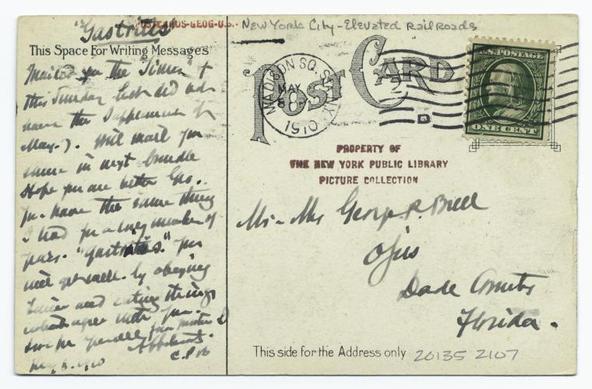 "Gastritis"
POSTCARDS-GEOG-U.S.
New York City - Elevated Railroads
This Space For Writing Messages
Mailed you the "Times" +
this Sunday but did not
have the Supplement of
May. ). Will mail you
same in next bundle
Hope you are better Geo.
you have the same thing
I had for a long number of
years. "Gastritis." you
will get well by obeying
and eating things
which agree with you.
C.P.
POST CARD
MADISON SQ. STA. N.Y.
MAY
8
1910
U.S. POSTAGE
ONE CENT
PROPERTY OF
THE NEW YORK PUBLIC LIBRARY
PICTURE COLLECTION
Mr - Mrs George R Buell
Ojus
Dade County
Florida.
This side for the Address only
20135 2107